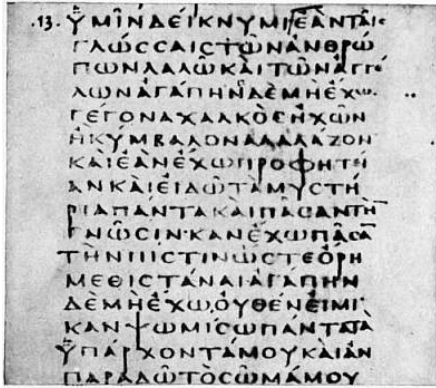 .13. ΫΜΙΝΔΕΙΚΝΥΜΙΕΑΝΤΑΙϹ
ΓΛΩϹϹΑΙϹΤΩΝΑΝΘΡΩ
ΠΩΝΛΑΛΩΚΑΙΤΩΝΑΓΓΕ
ΛΩΝΑΓΑΠΗΝΔΕΜΗΕΧΩ
ΓΕΓΟΝΑΧΑΛΚΟϹΗΧΩΝ
ΗΚΥΜΒΑΛΟΝΑΛΑΛΑΖΟΝ
ΚΑΙΕΑΝΕΧΩΠΡΟΦΗΤΙ
ΑΝΚΑΙΕΙΔΩΤΑΜΥϹΤΗ
ΡΙΑΠΑΝΤΑΚΑΙΠΑϹΑΝΤΗ̅
ΓΝΩϹΙΝΚΑΝΕΧΩΠΑϹΑ̅
ΤΗΝΠΙϹΤΙΝΩϹΤΕΟΡΗ
ΜΕΘΙϹΤΑΝΑΙΑΓΑΠΗΝ
ΔΕΜΗΕΧΩΟΥΘΕΝΕΙΜΙ
ΚΑΝΨΩΜΙϹΩΠΑΝΤΑΤΑ
ΫΠΑΡΧΟΝΤΑΜΟΥΚΑΙΑΝ
ΠΑΡΑΔΩΤΟϹΩΜΑΜΟΥ